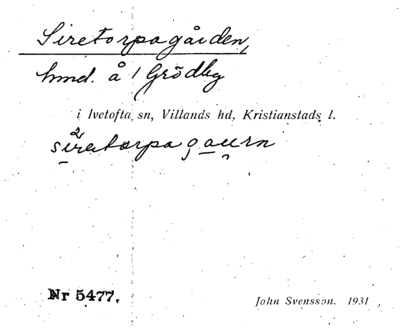 Siretorpagården,
hmd. å 1 Grödby
i Ivetofta sn, Villands hd, Kristianstads l.
Nr 5477.
John Svensson. 1931